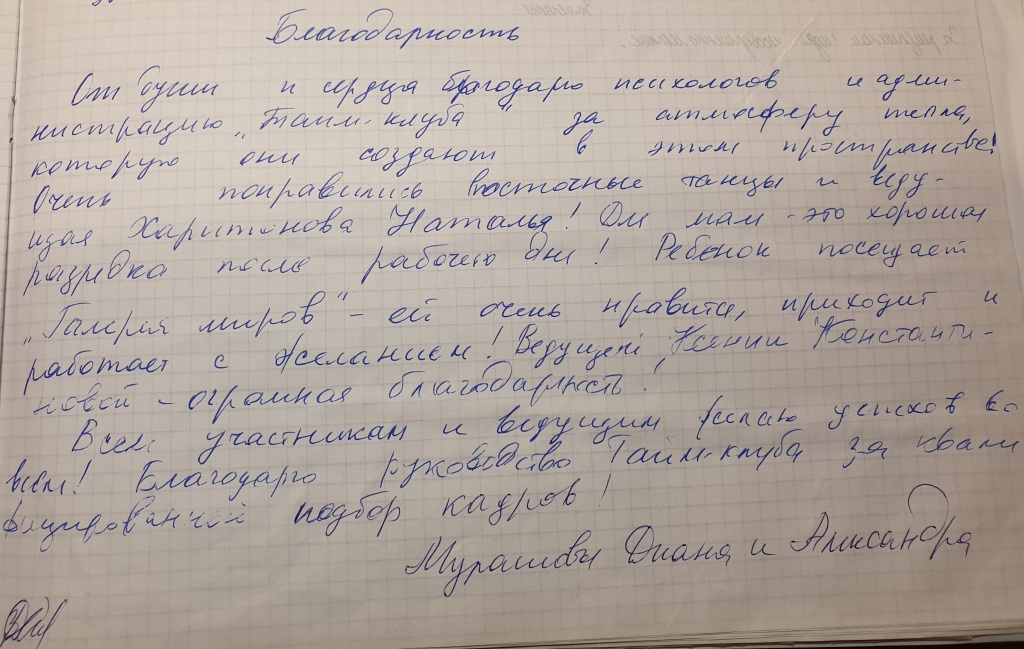 Благодарность
От души и сердца благодарю психологов и адми-
нистрацию „Тайм-клуба" за атмосферу тепла,
которую они создают в этом пространстве!
Очень понравились восточные танцы и веду-
щая Харитонова Наталья! Для мам - это хорошая
разрядка после рабочего дня! Ребенок посещает
„Галерея миров" - ей очень нравится, приходит и
работает с желанием! Ведущей Ксении Константи-
новой - огромная благодарность!
Всем участникам и ведущим желаю успехов во
всем! Благодарю руководство Тайм-клуба за квали
фицированный подбор кадров!
Мурашовы Диана и Александра